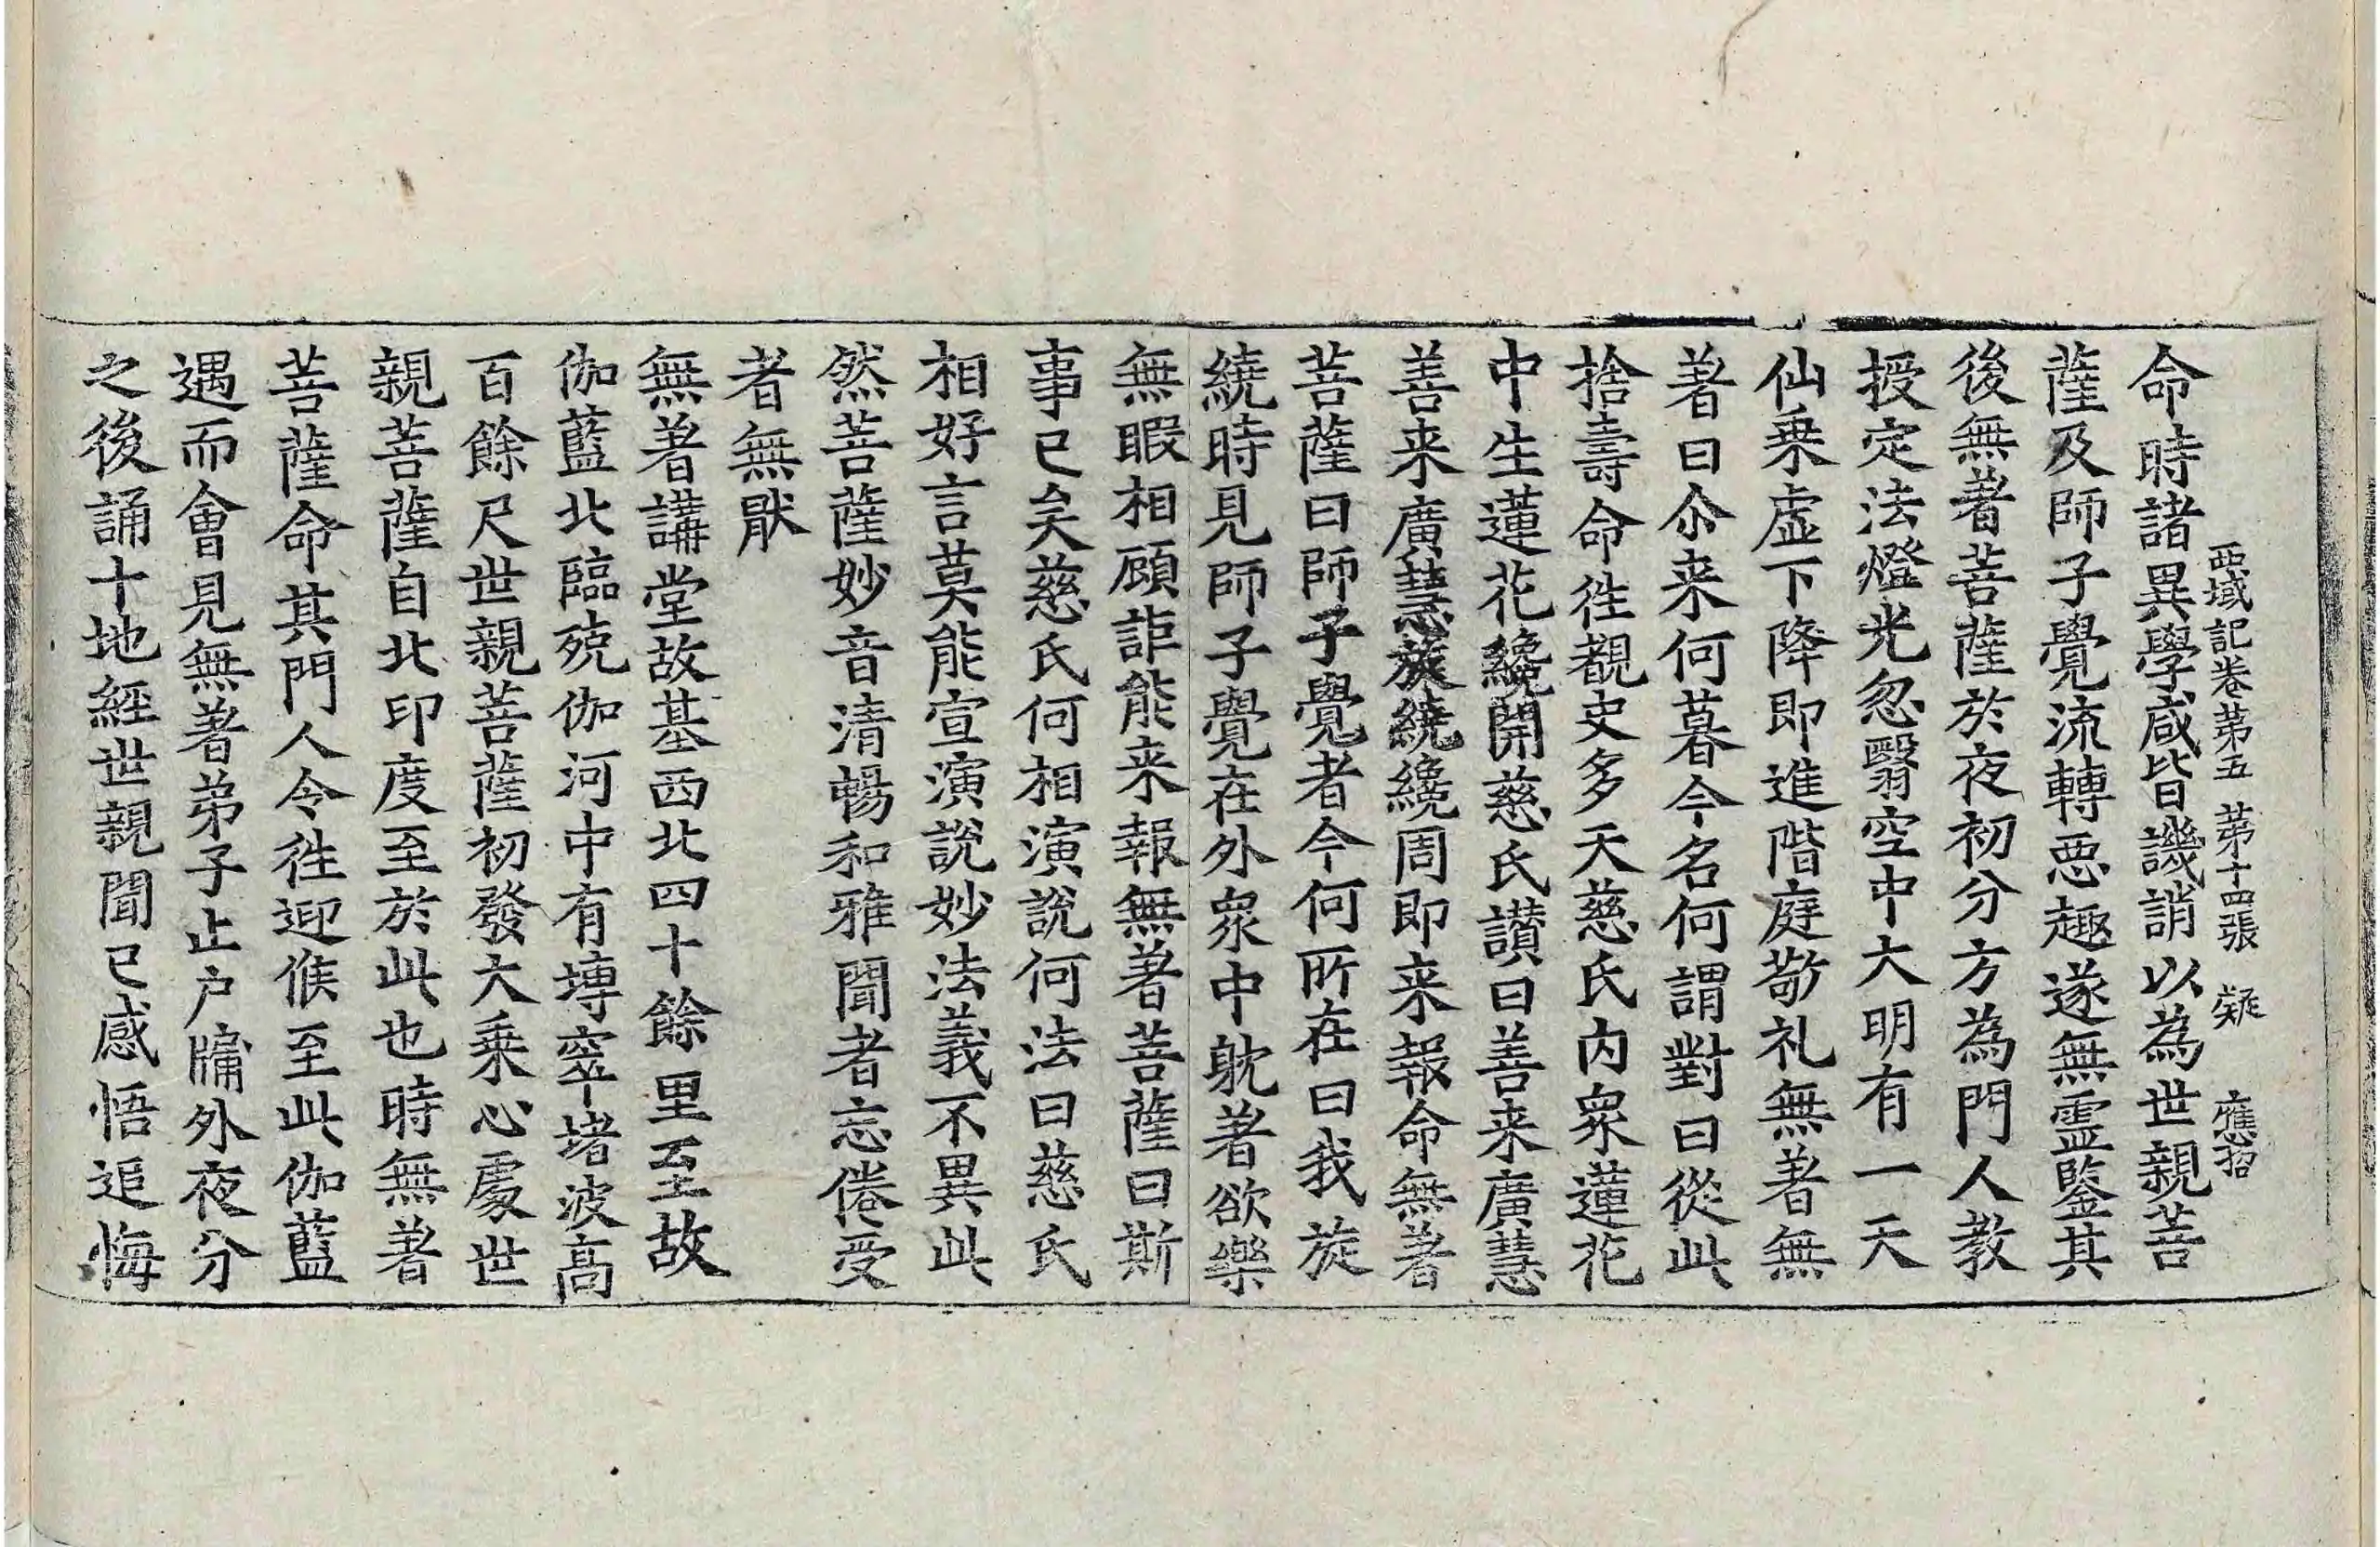 西域記卷苐五 苐十四張 疑 應招
命時諸異學咸皆譏誚以為世親菩
薩及師子覺流轉惡趣遂無靈鑒其
後無著菩薩於夜初分方為門人教
授定法燈光忽翳空中大明有一天
仙乘虛下降即進階庭敬礼無著無
著曰尒来何暮今名何謂對曰從此
捨壽命往覩史多天慈氏內衆蓮花
中生蓮花纔開慈氏讃曰善来廣慧
善来廣慧旋繞纔周即来報命無著
菩薩曰師子覺者今何所在曰我旋
繞時見師子覺在外衆中躭著欲樂
無暇相顧詎能来報無著菩薩曰斯
事已矣慈氏何相演說何法曰慈氏
相好言莫能宣演說妙法義不異此
然菩薩妙音清暢和雅聞者忘倦受
者無猒
無著講堂故基西北四十餘里至故
伽藍北臨殑伽河中有塼窣堵波高
百餘尺世親菩薩初發大乘心處世
親菩薩自北印度至於此也時無著
菩薩命其門人令往迎候至此伽藍
遇而會見無著弟子止户牖外夜分
之後誦十地經世親聞已感悟追悔